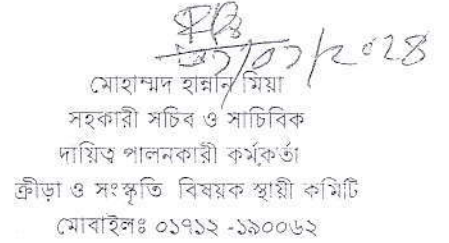 মোহাম্মদ হান্নান মিয়া
সহকারী সচিব ও সাচিবিক
দায়িত্ব পালনকারী কর্মকর্তা
ক্রীড়া ও সংস্কৃতি বিষয়ক স্থায়ী কমিটি
মোবাইলঃ ০১৭১২ -১৯০০৬২